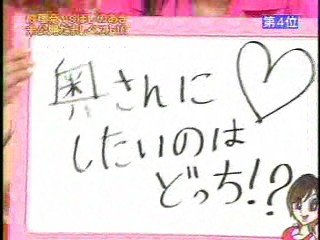 第4位
奥さんに♡
したいのは
どっち!?